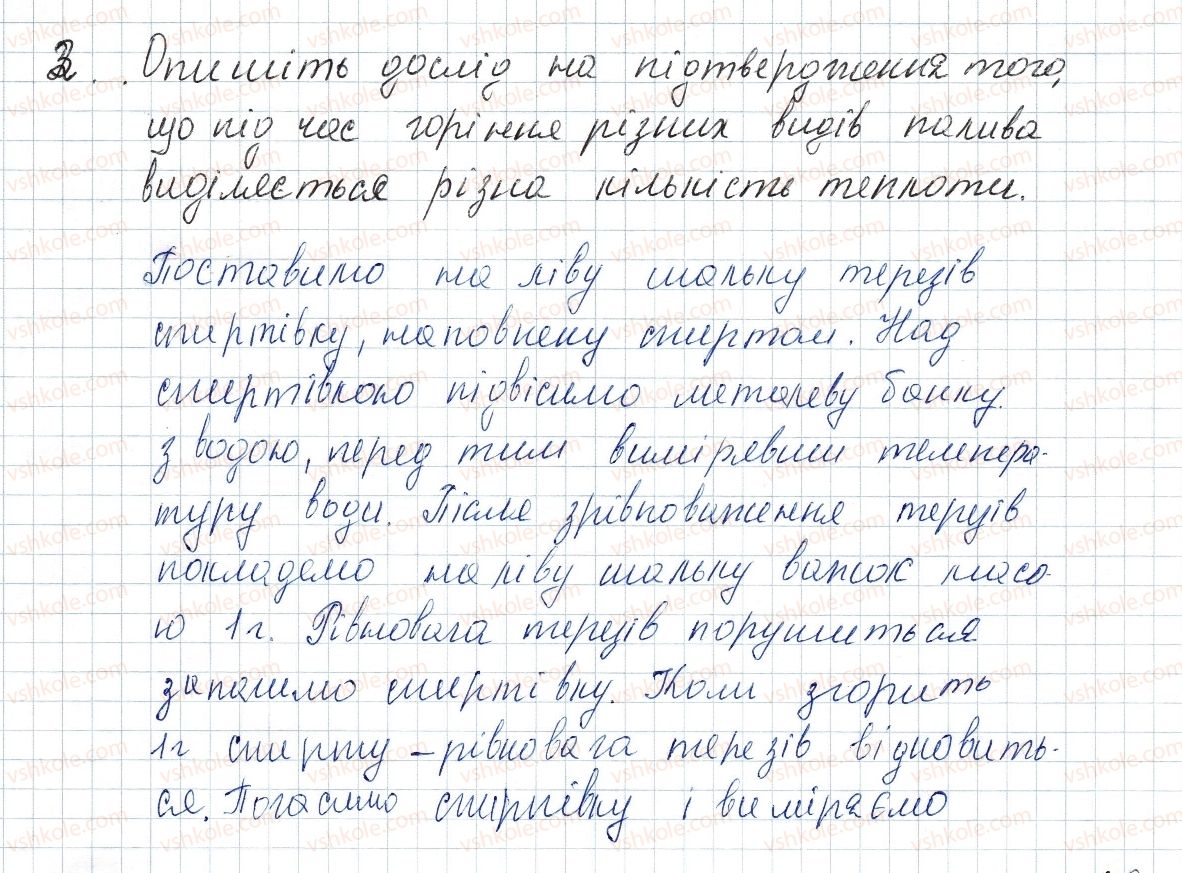 2. Опишіть дослід на підтвердження того,
що під час горіння різних видів палива
виділяється різна кількість теплоти.
Поставимо на ліву шальку терезів
спиртівку, наповнену спиртом. Над
спиртівкою підвісимо металеву банку
з водою, перед тим вимірявши темпера-
туру води. Після зрівноваження терезів
покладемо на ліву шальку важок масо-
ю 1г. Рівновага терезів порушиться
запалимо спиртівку. Коли згорить
1г спирту – рівновага терезів відновить-
ся. Погасимо спиртівку і виміряємо